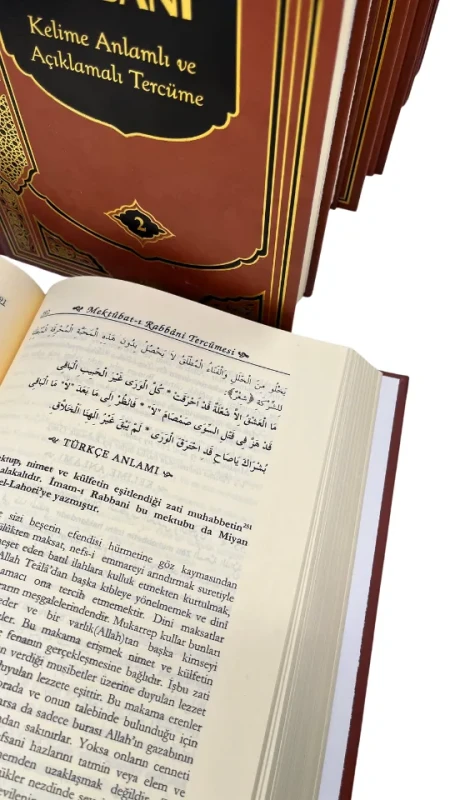 BANİ
Kelime Anlamlı ve
Açıklamalı Tercüme
2
Mektûbat-ı Rabbânî Tercümesi
يَخْلُو مِنَ الْخَلَلِ وَالْفَنَاءُ الْمُطْلَقُ لَا يَحْصُلُ بِدُونِ هَذِهِ الْمَحَبَّةِ
للشركة ﴿شعر﴾:
مَا الْعِشْقُ اِلَّا شُعْلَةٌ قَدْ اَحْرَقَتْ * كُلَّ الْوَرَى غَيْرَ الْحَبِيبِ الْبَاقِى
قَدْ هَزَّ فِى قَتْلِ السِّوَى صَمْصَامَ "لَا" * فَانْظُرْ اِلَى مَا بَعْدَ "لَا" مَا الْبَاقِى
بُشْرَاكَ يَاصَاحِ قَدِ احْتَرَقَ الْوَرَى * لَمْ يَبْقَ غَيْرُ اِلَهِنَا الْخَلَّاقِ
TÜRKÇE ANLAMI
ktup, nimet ve külfetin eşitlendiği zati muhabbetin
alakalıdır. İmam-ı Rabbani bu mektubu da Miyan
el-Lahori'ye yazmıştır.
sizi beşerin efendisi hürmetine göz kaymasından
lükten maksat, nefs-i emmareyi arındırmak suretiyle
neşet eden batıl ilahlara kulluk etmekten kurtulmak,
Allah Teâlâ'dan başka kıbleye yönelmemek ve dini
amacı ona tercih etmemektir. Dini maksatlar
rarın meşgalelerindendir. Mukarrep kullar bunları
eder ve bir varlık(Allah)tan başka kimseyi
ler. Bu makama erişmek nimet ve külfetin
fenanın gerçekleşmesine bağlıdır. İşbu zati
n verdiği musibetler üzerine duyulan lezzet
duyulan lezzete eşittir. Bu makama erenler
orada ve onun talebinde bulunduğu için
arsa da sadece burası Allah'ın gazabının
ndan sakınırlar. Yoksa onların cenneti
efsani hazlarını tatmin veya elem ve
nemden uzaklaşmak değildir.
ükler nezdinde